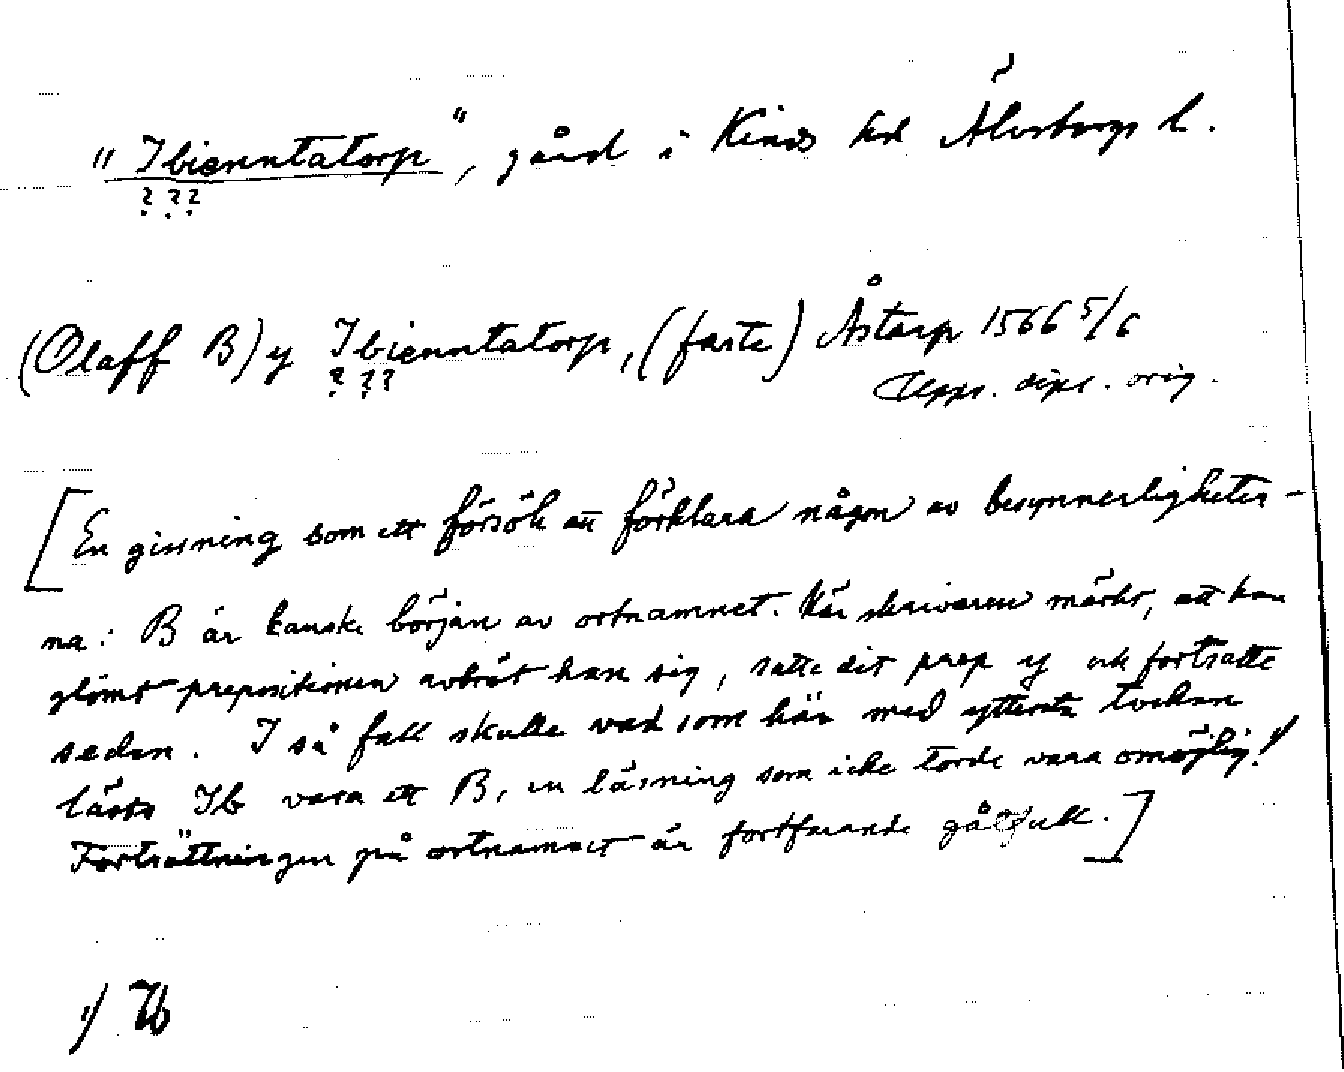 "Ibienntatorp", gård i Kinds hd Älvsborgs l.
? ? ?
(Olaff B) y Ibienntatorp, (faste) Åstarp 1566 5/6
? ? ?
Upps. dipl. orig.
[En gissning som ett försök att förklara någon av besynnerligheter-
na: B är kanske början av ortnamnet. När skrivaren märkt, att han
glömt prepositionen avbröt han sig, satte dit prep y och fortsatte
sedan. I så fall skulle vad som här med yttersta tvekan
lästs Ib vara ett B, en läsning som icke torde vara omöjlig!1)
Fortsättningen på ortnamnet är fortfarande gåtfull.]
1) Ib